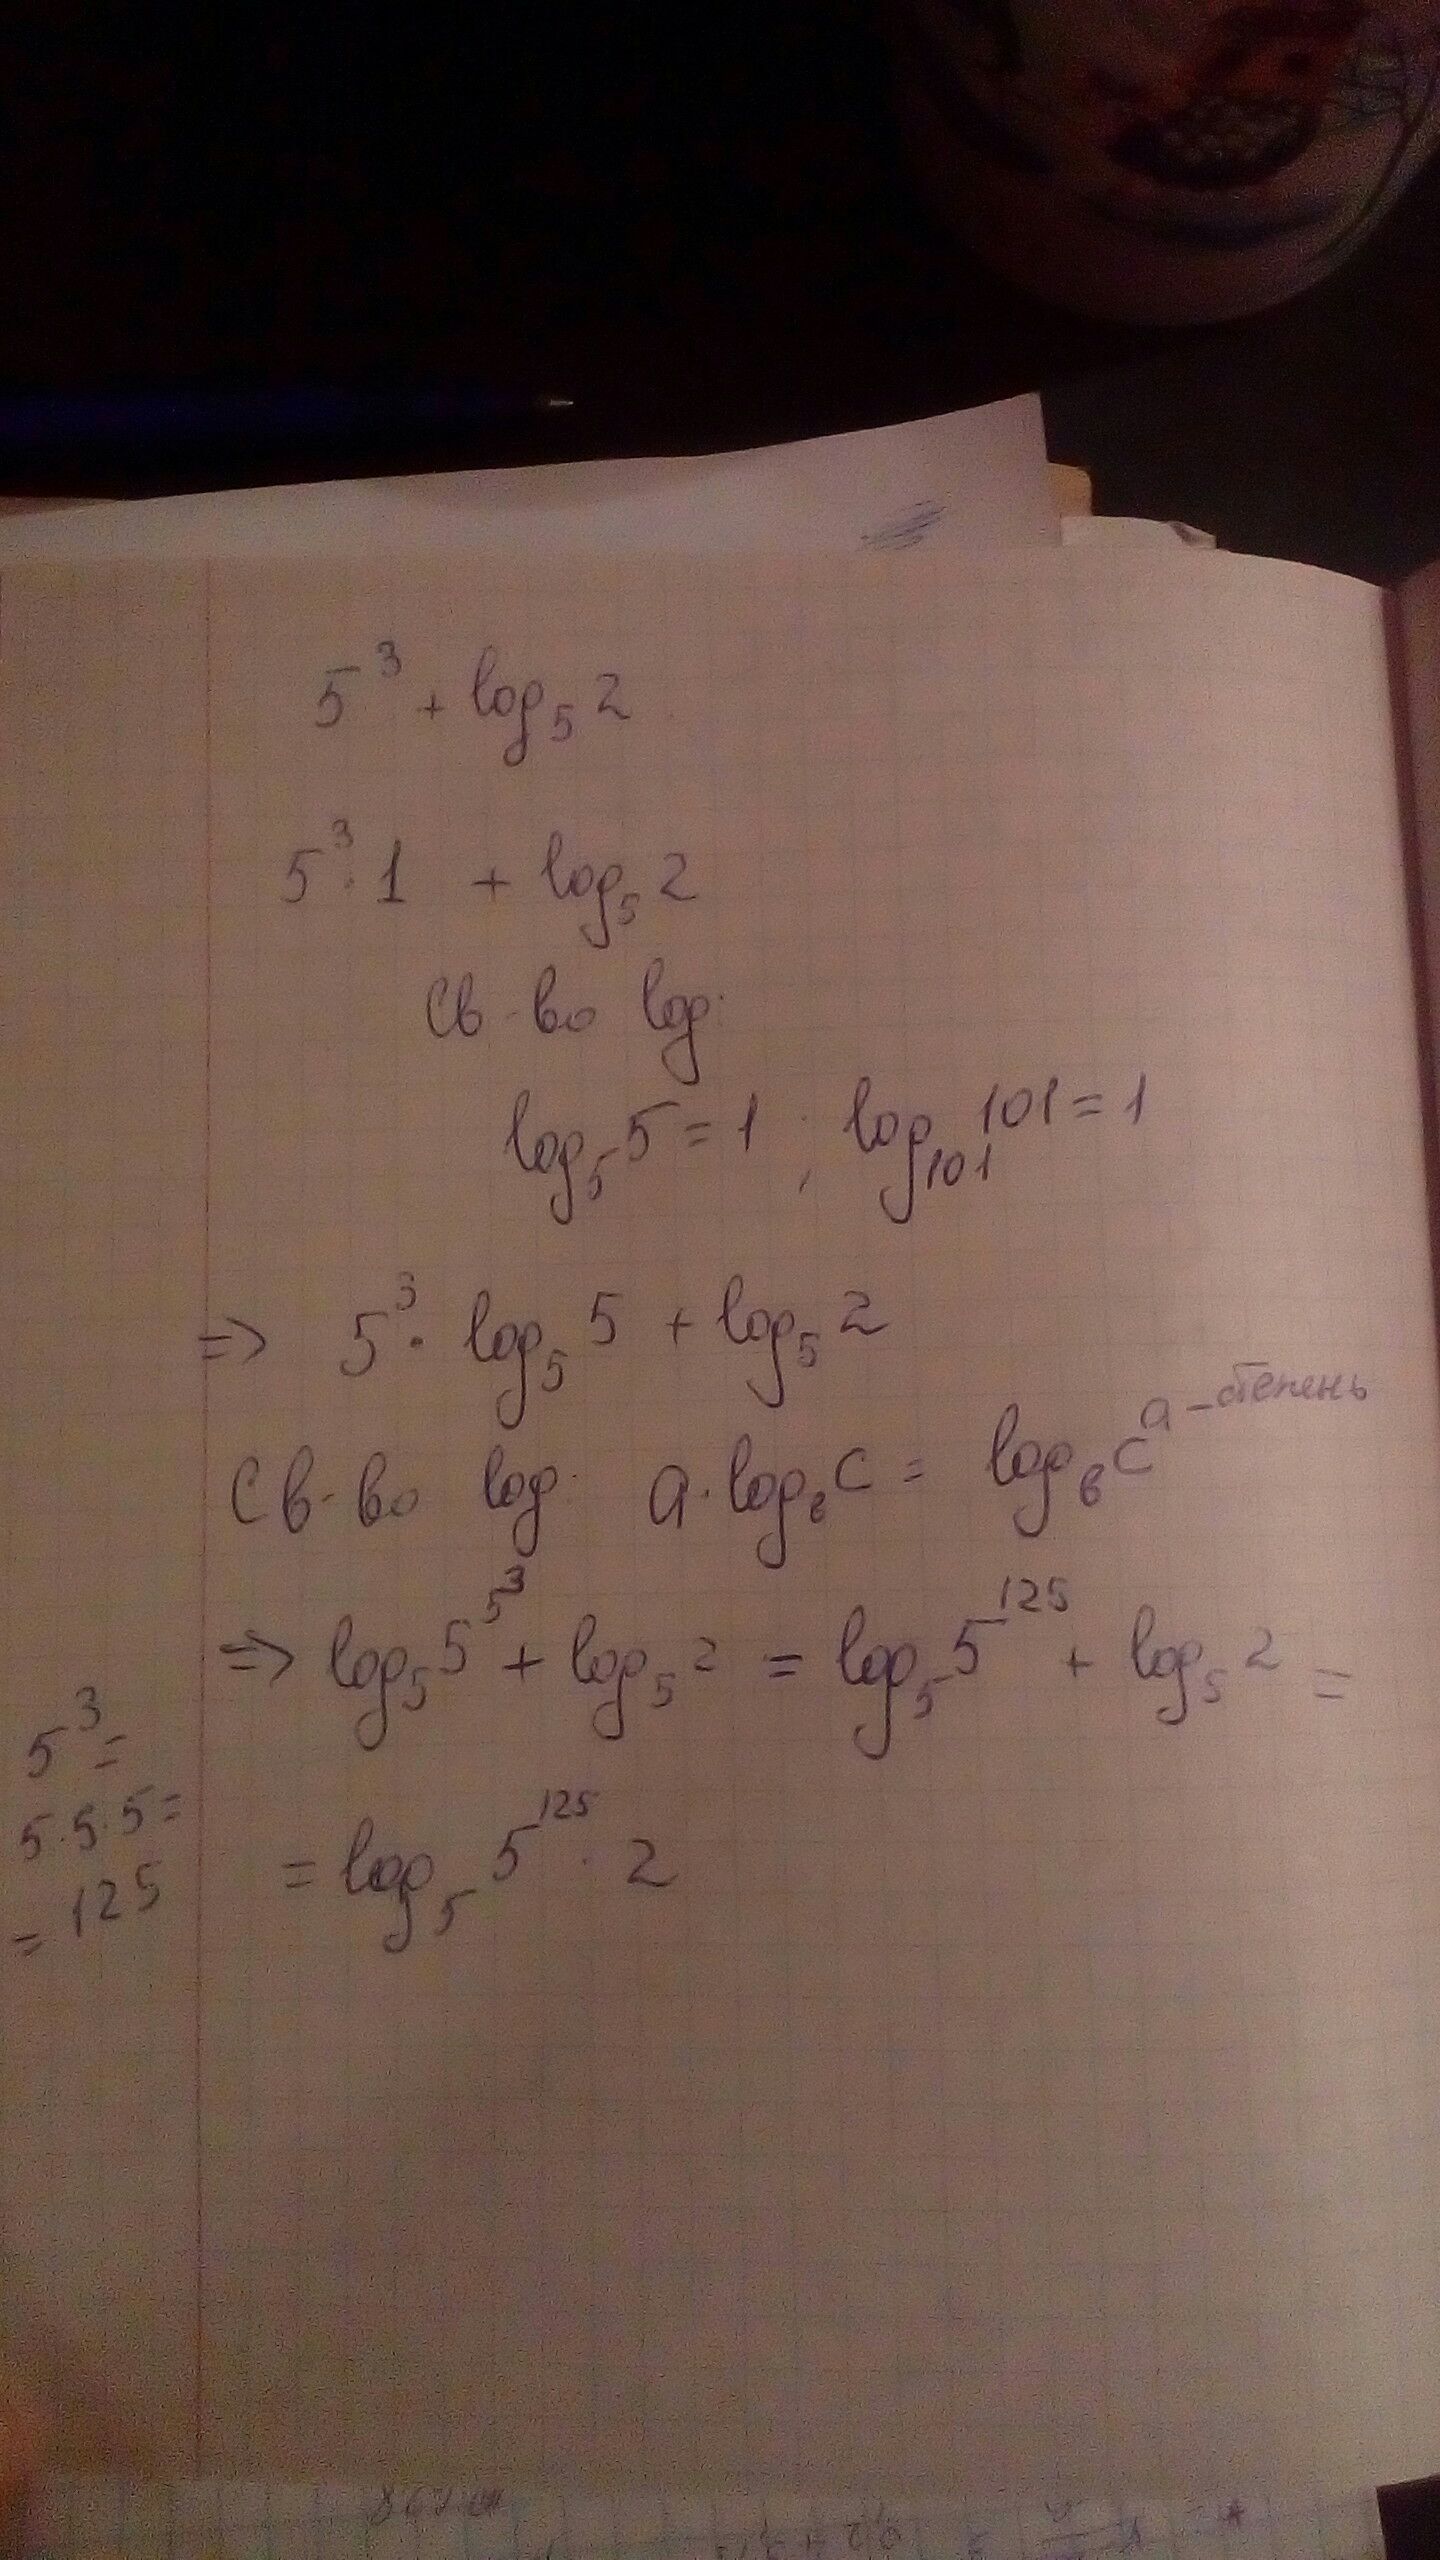 5³ + log₅ 2
5³ · 1 + log₅ 2
Св-во log:
log₅ 5 = 1 ; log₁₀₁ 101 = 1
=> 5³ · log₅ 5 + log₅ 2
Св-во log: a · log_b c = log_b c^a - степень
=> log₅ 5^5^3 + log₅ 2 = log₅ 5^125 + log₅ 2 =
= log₅ 5^125 · 2
5³ =
5·5·5 =
= 125